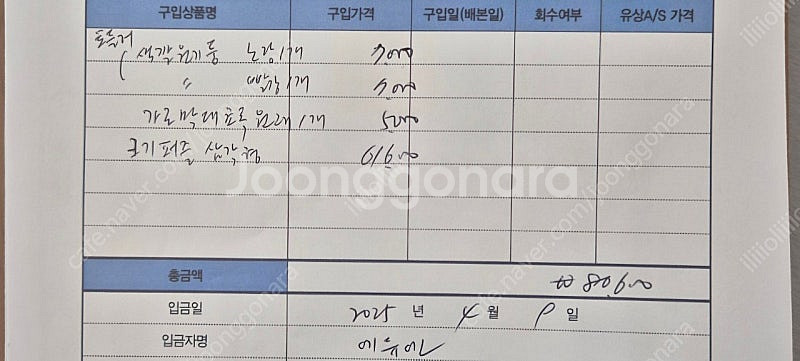 구입상품명 구입가격 구입일(배본일) 회수여부 유상A/S 가격
토들러
색깔원기둥 노랑 1개 7000
〃 빨강 1개 7000
가로막대 1개 5000
크기퍼즐 삼각형 61600
Joonggonara
총금액 ₩ 80,600
입금일 2025 년 4 월 9 일
입금자명 에듀엔
cafe.naver.com/joonggonara